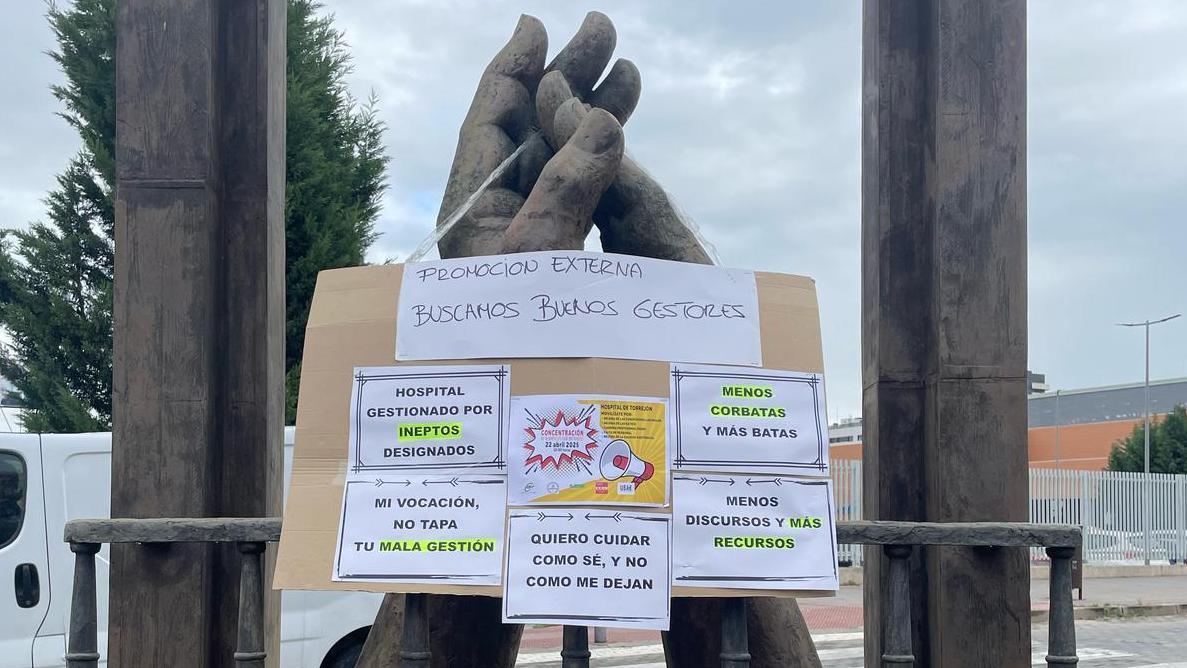 PROMOCION EXTERNA
BUSCAMOS BUENOS GESTORES
HOSPITAL
GESTIONADO POR
INEPTOS
DESIGNADOS
MENOS
CORBATAS
Y MÁS BATAS
CONCENTRACIÓN
22 abril 2025
HOSPITAL DE TORREJÓN
MI VOCACIÓN,
NO TAPA
TU MALA GESTIÓN
QUIERO CUIDAR
COMO SÉ, Y NO
COMO ME DEJAN
MENOS
DISCURSOS Y MÁS
RECURSOS